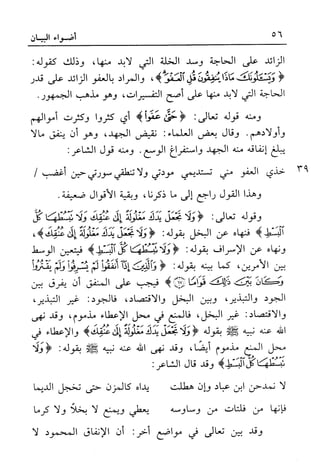 ٥٦ أضواء البيان
الزائد على الحاجة وسد الخلة التي لابد منها، وذلك كقوله:
﴿ وَيَسْـَٔلُونَكَ مَاذَا يُنفِقُونَ قُلِ ٱلْعَفْوَ ﴾، والمراد بالعفو الزائد على قدر
الحاجة التي لابد منها على أصح التفسيرات، وهو مذهب الجمهور.
ومنه قوله تعالى: ﴿ حَتَّىٰ عَفَوا ﴾ أي كثروا وكثرت أموالهم
وأولادهم. وقال بعض العلماء: العفو نقيض الجهد، وهو أن ينفق مالا
يبلغ إنفاقه منه الجهد واستفراغ الوسع. ومنه قول الشاعر:
خذي العفو مني تستديمي مودتي ولا تنطقي سورتي حين أغضب / ٣٩
وهذا القول راجع إلى ما ذكرنا، وبقية الأقوال ضعيفة.
وقوله تعالى: ﴿ وَلَا تَجْعَلْ يَدَكَ مَغْلُولَةً إِلَىٰ عُنُقِكَ وَلَا تَبْسُطْهَا كُلَّ
ٱلْبَسْطِ ﴾ فنهاه عن البخل بقوله: ﴿ وَلَا تَجْعَلْ يَدَكَ مَغْلُولَةً إِلَىٰ عُنُقِكَ ﴾،
ونهاه عن الإسراف بقوله: ﴿ وَلَا تَبْسُطْهَا كُلَّ ٱلْبَسْطِ ﴾ فيتعين الوسط
بين الأمرين، كما بينه بقوله: ﴿ وَٱلَّذِينَ إِذَآ أَنفَقُوا۟ لَمْ يُسْرِفُوا۟ وَلَمْ يَقْتُرُوا۟
وَكَانَ بَيْنَ ذَٰلِكَ قَوَامًا ۝٦٧ ﴾ فيجب على المنفق أن يفرق بين
الجود والتبذير، وبين البخل والاقتصاد، فالجود: غير التبذير،
والاقتصاد: غير البخل، فالمنع في محل الإعطاء مذموم، وقد نهى
الله عنه نبيه ﷺ بقوله ﴿ وَلَا تَجْعَلْ يَدَكَ مَغْلُولَةً إِلَىٰ عُنُقِكَ ﴾ والإعطاء في
محل المنع مذموم أيضًا، وقد نهى الله عنه نبيه ﷺ بقوله: ﴿ وَلَا
تَبْسُطْهَا كُلَّ ٱلْبَسْطِ ﴾ وقد قال الشاعر:
لا تمدحن ابن عباد وإن هطلت يداه كالمزن حتى تخجل الديما
فإنها من فلتات من وساوسه يعطي ويمنع لا بخلاً ولا كرما
وقد بين تعالى في مواضع أخر: أن الإنفاق المحمود لا